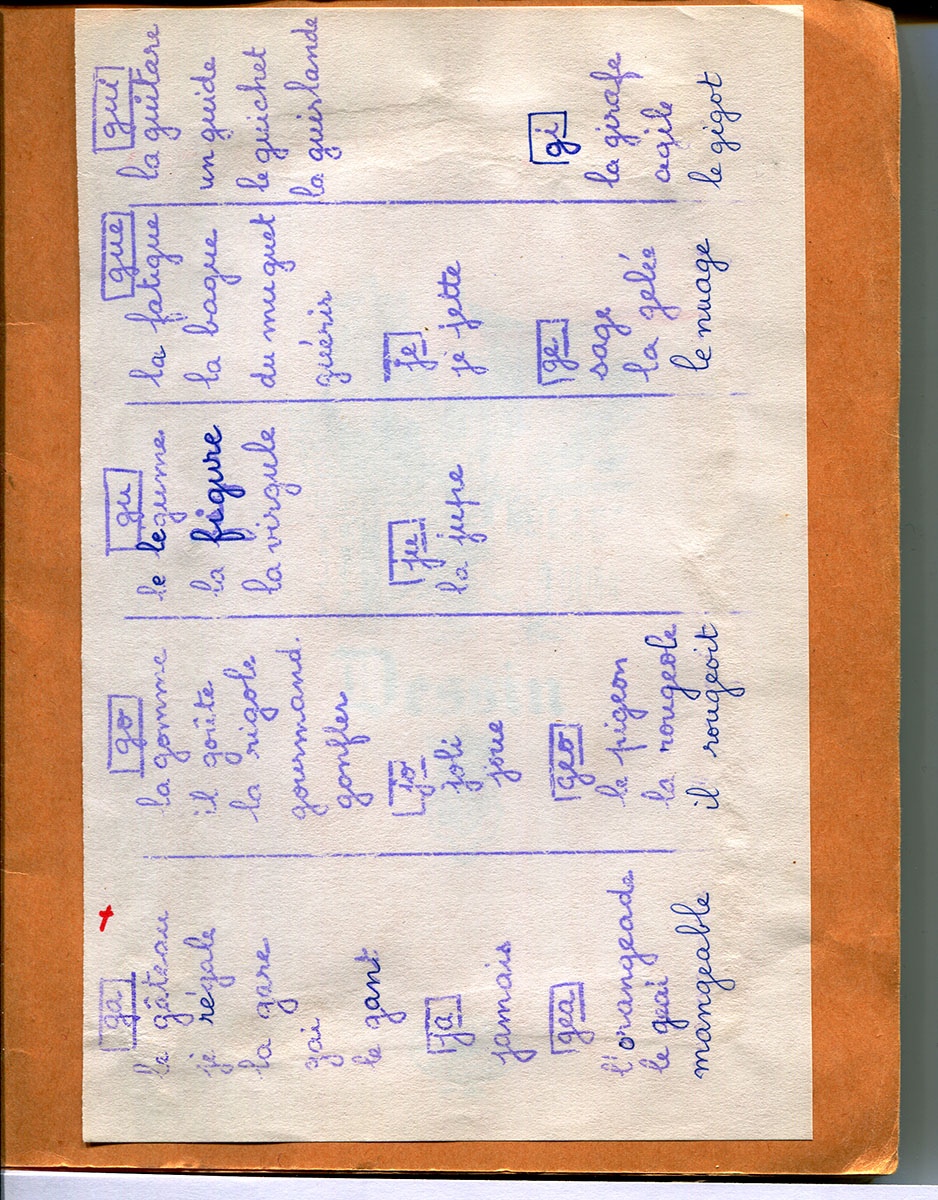 ga
le gâteau
je régale
la gare
gai
le gant
ja
jamais
gea
l'orangeade
le geai
mangeable
go
la gomme
il goûte
la rigole
gourmand.
gonfler
jo
joli
joue
geo
le pigeon
la rougeole
il rougeoit
gu
le legume.
la figure
la virgule
ju
la jupe
gue
la fatigue
la bague
du muguet
guérir
je
je jette
ge
sage
la gelée
le nuage
gui
la guitare
un guide
le guichet
la guirlande
gi
la girafe
agile
le gigot